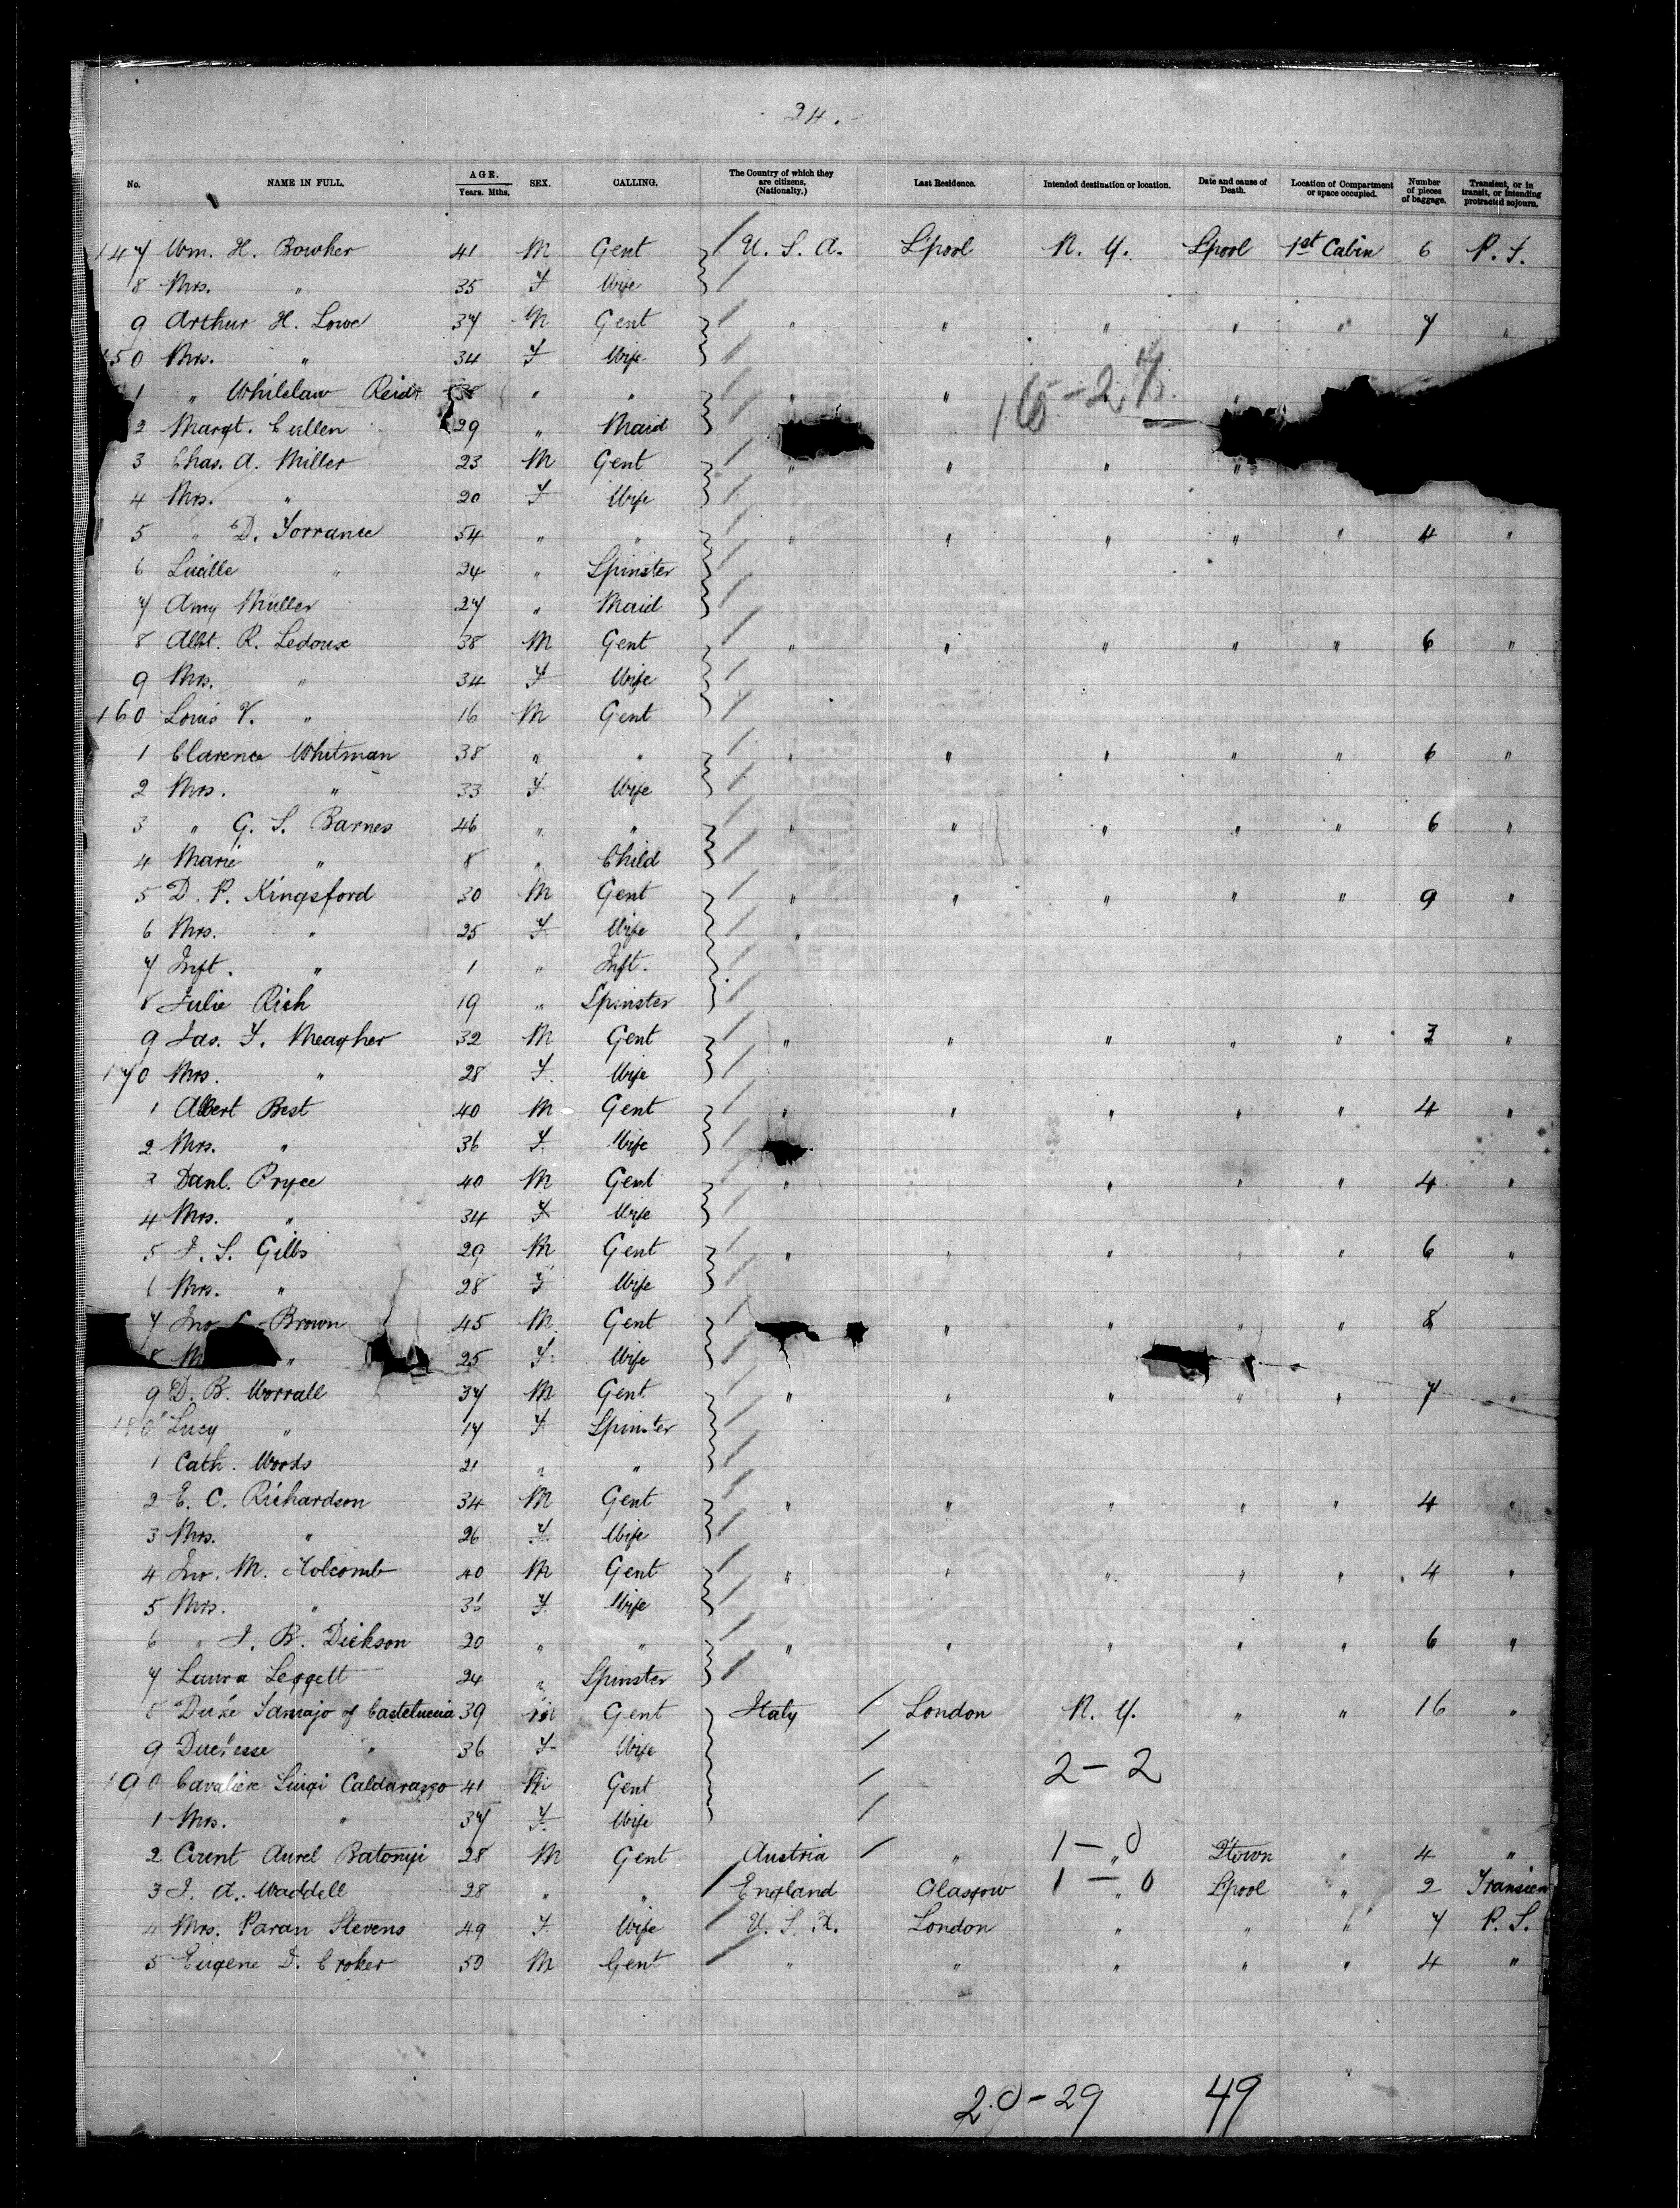 24.
No. NAME IN FULL. AGE. Years. Mths. SEX. CALLING. The Country of which they are citizens. (Nationalty.) Last Residence. Intended destination or location. Date and cause of Death. Location of Compartment or space occupied. Number of pieces of baggage. Transient, or in transit, or intending protracted sojourn.
147 Wm. H. Bowker 41 M Gent U. S. A. L'pool N. Y. L'pool 1st Cabin 6 P. S.
8 Mrs. " 35 F Wife
9 Arthur H. Lowe 37 M Gent " " " " " 7 "
150 Mrs. " 34 F Wife
1 " Whitelaw Reid 38 " " " " "
16-27
2 Margt. Cullen 29 " Maid
3 Chas. A. Miller 23 M Gent " " " "
4 Mrs. " 20 F Wife
5 " D. Torrance 54 " " " " " " " 4 "
6 Lucille " 24 " Spinster
7 Amy Müller 27 " Maid
8 Albt. R. Ledoux 38 M Gent " " " " " 6 "
9 Mrs. " 34 F Wife
160 Louis V. " 16 M Gent
1 Clarence Whitman 38 " " " " " " " 6 "
2 Mrs. " 33 F Wife
3 " G. S. Barnes 46 " " " " " " " 6 "
4 Marie " 8 " Child
5 D. P. Kingsford 30 M Gent " " " " " 9 "
6 Mrs. " 25 F Wife "
7 Inft. " 1 " Inft.
8 Julie Rich 19 " Spinster
9 Jas. F. Meagher 32 M Gent " " " " " 3 "
170 Mrs. " 28 F. Wife
1 Albert Best 40 M Gent " " " " " 4 "
2 Mrs. " 36 F. Wife
3 Danl. Pryce 40 M Gent " " " " 4 "
4 Mrs. " 34 F Wife
5 J. S. Gibbs 29 M Gent " " " " " 6 "
6 Mrs. " 28 F Wife
7 Jno Brown 45 M Gent " " " " 8
8 " 25 F. Wife
9 D. B. Worrall 37 M Gent " " " " " 7 "
180 Lucy " 17 F Spinster
1 Cath. Woods 21 " "
2 E. C. Richardson 34 M Gent " " " " " 4 "
3 Mrs. " 26 F. Wife
4 Jno. M. Holcomb 40 M Gent " " " " " 4 "
5 Mrs. " 36 F. Wife
6 " J. B. Dickson 20 " " " " " " " 6 "
7 Laura Leggett 24 " Spinster
8 Duke of Castelnuccia 39 M Gent Italy London N. Y. " " 16 "
9 Duchesse " 36 F Wife
2-2
190 Cavaliere Luigi Caldarazzo 41 M Gent
1 Mrs. " 37 F. Wife
1-0
2 Count Aurel Batonyi 28 M Gent Austria " " Q'town " 4 "
3 J. A. Waddell 28 " " England Glasgow 1-0 " L'pool " 2 Transien
4 Mrs. Paran Stevens 49 F. Wife U. S. A. London " " " 7 P. S.
5 Eugene D. Croker 50 M Gent " " " " " 4 "
20-29 49